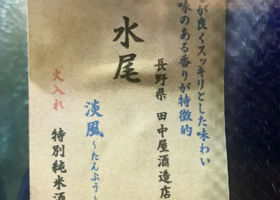 が良くスッキリとした味わい
味のある香りが特徴的
水尾
長野県 田中屋酒造店
淡風
~たんぷう~
火入れ
特別純米酒